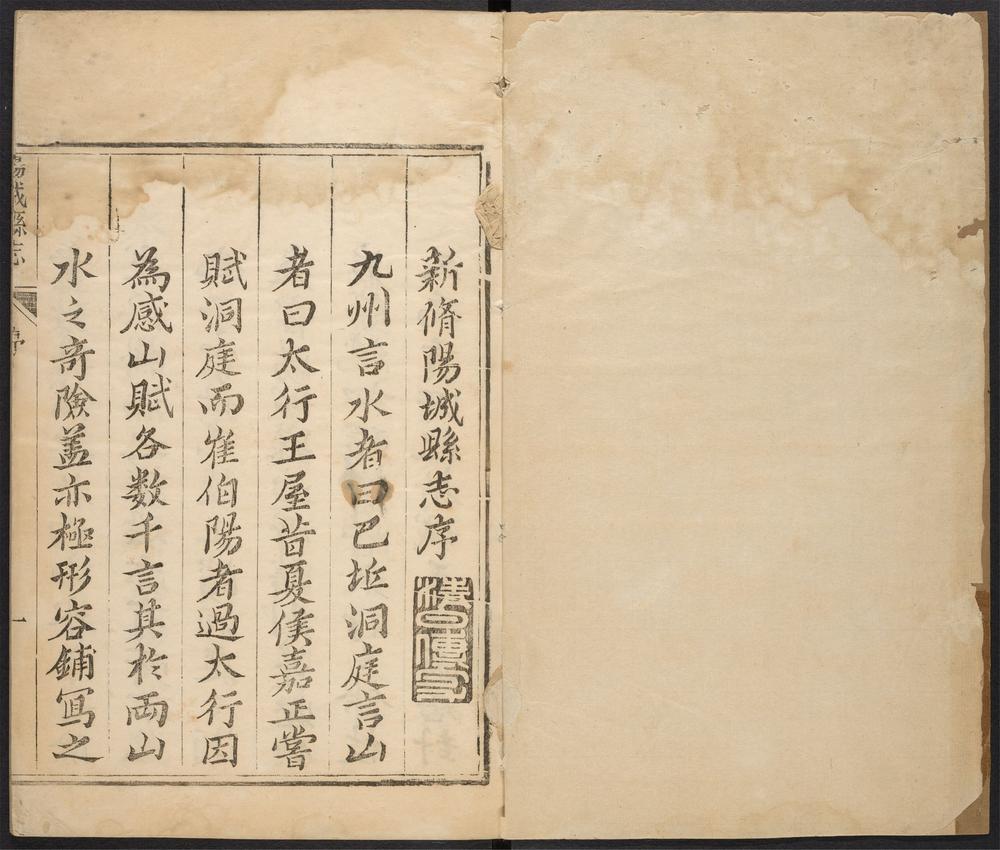 新脩陽城縣志序
九州言水者曰巴丘洞庭言山
者曰太行王屋昔夏侯嘉正嘗
賦洞庭而崔伯陽者過太行因
為感山賦各数千言其於両山
水之竒險盖亦極形容鋪冩之
陽城縣志
序
一